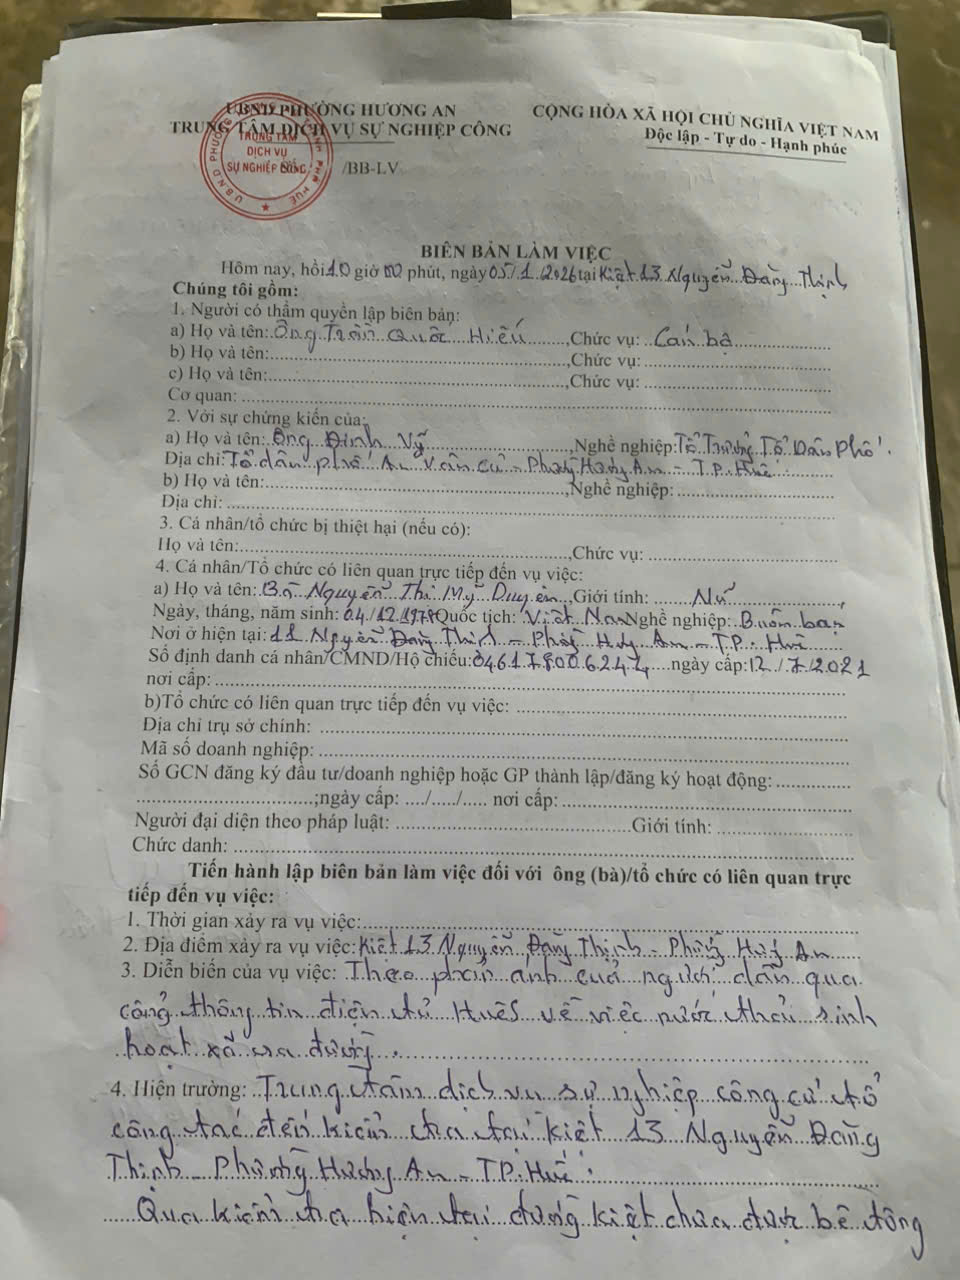 UBND PHƯỜNG HƯƠNG AN
TRUNG TÂM DỊCH VỤ SỰ NGHIỆP CÔNG
CỘNG HÒA XÃ HỘI CHỦ NGHĨA VIỆT NAM
Độc lập - Tự do - Hạnh phúc
TRUNG TÂM
DỊCH VỤ
SỰ NGHIỆP CÔNG
Số: /BB-LV
BIÊN BẢN LÀM VIỆC
Hôm nay, hồi 10 giờ 00 phút, ngày 05/1/2026 tại Kiệt 13 Nguyễn Đăng Thịnh
Chúng tôi gồm:
1. Người có thẩm quyền lập biên bản:
a) Họ và tên: Ông Trần Quốc Hiếu, Chức vụ: Cán bộ
b) Họ và tên: ,Chức vụ:
c) Họ và tên: ,Chức vụ:
Cơ quan:
2. Với sự chứng kiến của:
a) Họ và tên: Ông Đinh Vỹ ,Nghề nghiệp: Tổ Trưởng Tổ Dân Phố.
Địa chỉ: Tổ dân phố An Vân - Phường Hương An - T.P. Huế.
b) Họ và tên: ,Nghề nghiệp:
Địa chỉ:
3. Cá nhân/tổ chức bị thiệt hại (nếu có):
Họ và tên: ,Chức vụ:
4. Cá nhân/Tổ chức có liên quan trực tiếp đến vụ việc:
a) Họ và tên: Bà Nguyễn Thị Mỹ Duyên, Giới tính: Nữ,
Ngày, tháng, năm sinh: 04/12/1978 Quốc tịch: Việt Nam Nghề nghiệp: Buôn bán
Nơi ở hiện tại: 11 Nguyễn Đăng Thịnh - Phường Hương An - T.P. Huế
Số định danh cá nhân/CMND/Hộ chiếu: ngày cấp: 12/7/2021
nơi cấp:
b)Tổ chức có liên quan trực tiếp đến vụ việc:
Địa chỉ trụ sở chính:
Mã số doanh nghiệp:
Số GCN đăng ký đầu tư/doanh nghiệp hoặc GP thành lập/đăng ký hoạt động:
;ngày cấp: ..../...../..... nơi cấp:
Người đại diện theo pháp luật: Giới tính:
Chức danh:
Tiến hành lập biên bản làm việc đối với ông (bà)/tổ chức có liên quan trực
tiếp đến vụ việc:
1. Thời gian xảy ra vụ việc:
2. Địa điểm xảy ra vụ việc: Kiệt 13 Nguyễn Đăng Thịnh - Phường Hương An
3. Diễn biến của vụ việc: Theo phản ánh của người dân qua
cổng thông tin điện tử HuếS về việc nước thải sinh
hoạt xả ra đường.
4. Hiện trường: Trung tâm dịch vụ sự nghiệp công cử tổ
công tác đến kiểm tra tại kiệt 13 Nguyễn Đăng
Thịnh - Phường Hương An - T.P. Huế.
Qua kiểm tra hiện tại đường kiệt chưa được bê tông